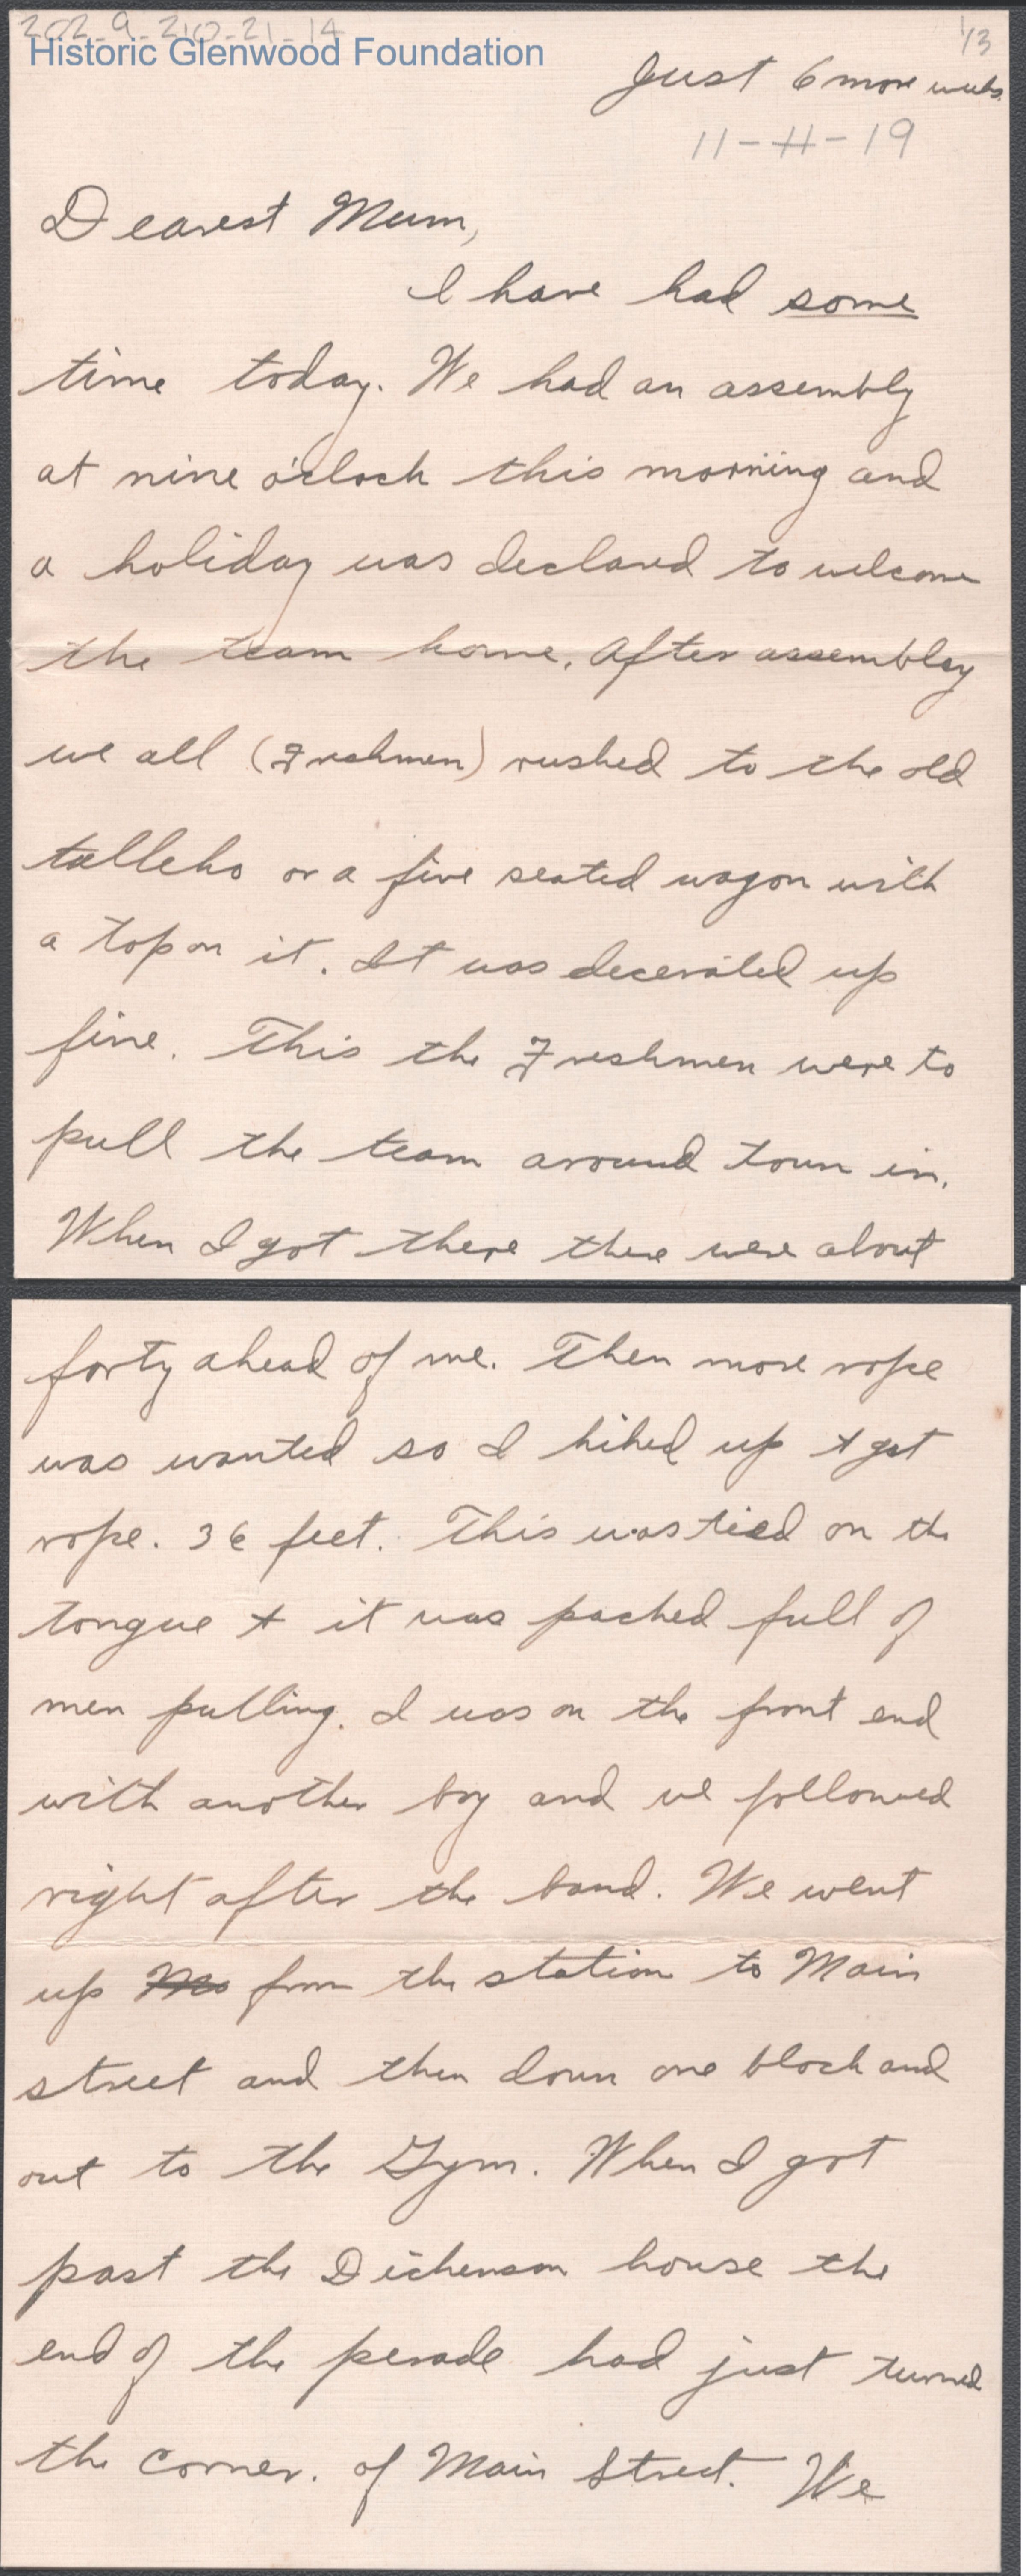 202-9-210-21-14
1/3
Historic Glenwood Foundation
Just 6 more weeks.
11-11-19
Dearest Mum,
I have had some
time today. We had an assembly
at nine o'clock this morning and
a holiday was declared to welcome
the team home. After assembley
we all (Freshmen) rushed to the old
talleho or a five seated wagon with
a top on it. It was decerated up
fine. This the Freshmen were to
pull the team around town in.
When I got there there were about
forty ahead of me. Then more rope
was wanted so I hiked up + got
rope. 36 feet. This was tied on the
tongue + it was packed full of
men pulling. I was on the front end
with another boy and we followed
right after the band. We went
up Ma from the station to Main
street and then down one block and
out to the Gym. When I got
past the Dickenson house the
end of the perade had just turned
the corner. of Main Street. We